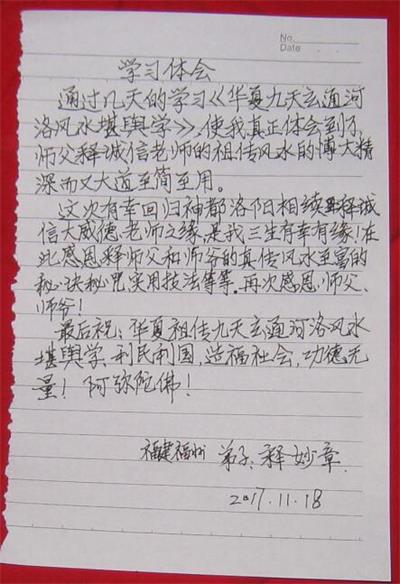 No.
Date
学习体会
通过几天的学习《华夏九天玄通河
洛风水堪舆学》,使我真正体会到了
师父释诚信老师的祖传风水的博大精
深而又大道至简至用。
这次有幸回归神都洛阳相续释诚
信大威德老师之缘,是我三生有幸有缘!在
此感恩释师父和师爷的真传风水至宝的
秘诀秘咒,实用技法等等,再次感恩师父、
师爷!
最后祝:华夏祖传九天玄通河洛风水
堪舆学、利民利国,造福社会,功德无
量!阿弥陀佛!
福建福州 弟子:释妙章
2017.11.18